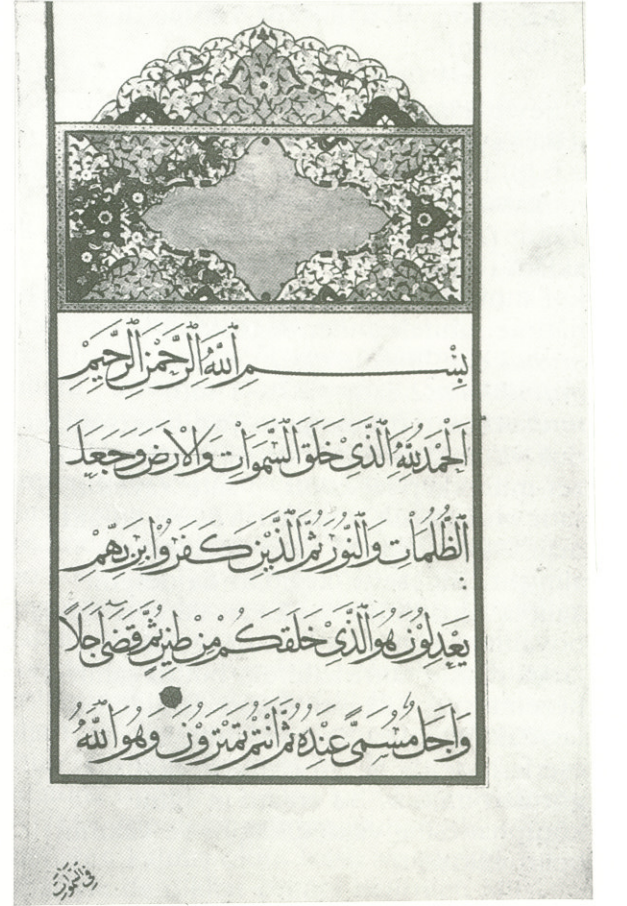 بِسْمِ اللّٰهِ الرَّحْمٰنِ الرَّحِيْمِ
اَلْحَمْدُ لِلّٰهِ الَّذِىْ خَلَقَ السَّمٰوَاتِ وَالْاَرْضَ وَجَعَلَ
الظُّلُمَاتِ وَالنُّوْرَ ثُمَّ الَّذِيْنَ كَفَرُوْا بِرَبِّهِمْ
يَعْدِلُوْنَ هُوَ الَّذِىْ خَلَقَكُمْ مِنْ طِيْنٍ ثُمَّ قَضٰى اَجَلًا
وَاَجَلٌ مُسَمًّى عِنْدَهُ ثُمَّ اَنْتُمْ تَمْتَرُوْنَ وَهُوَ اللّٰهُ
فِى السَّمٰوَاتِ